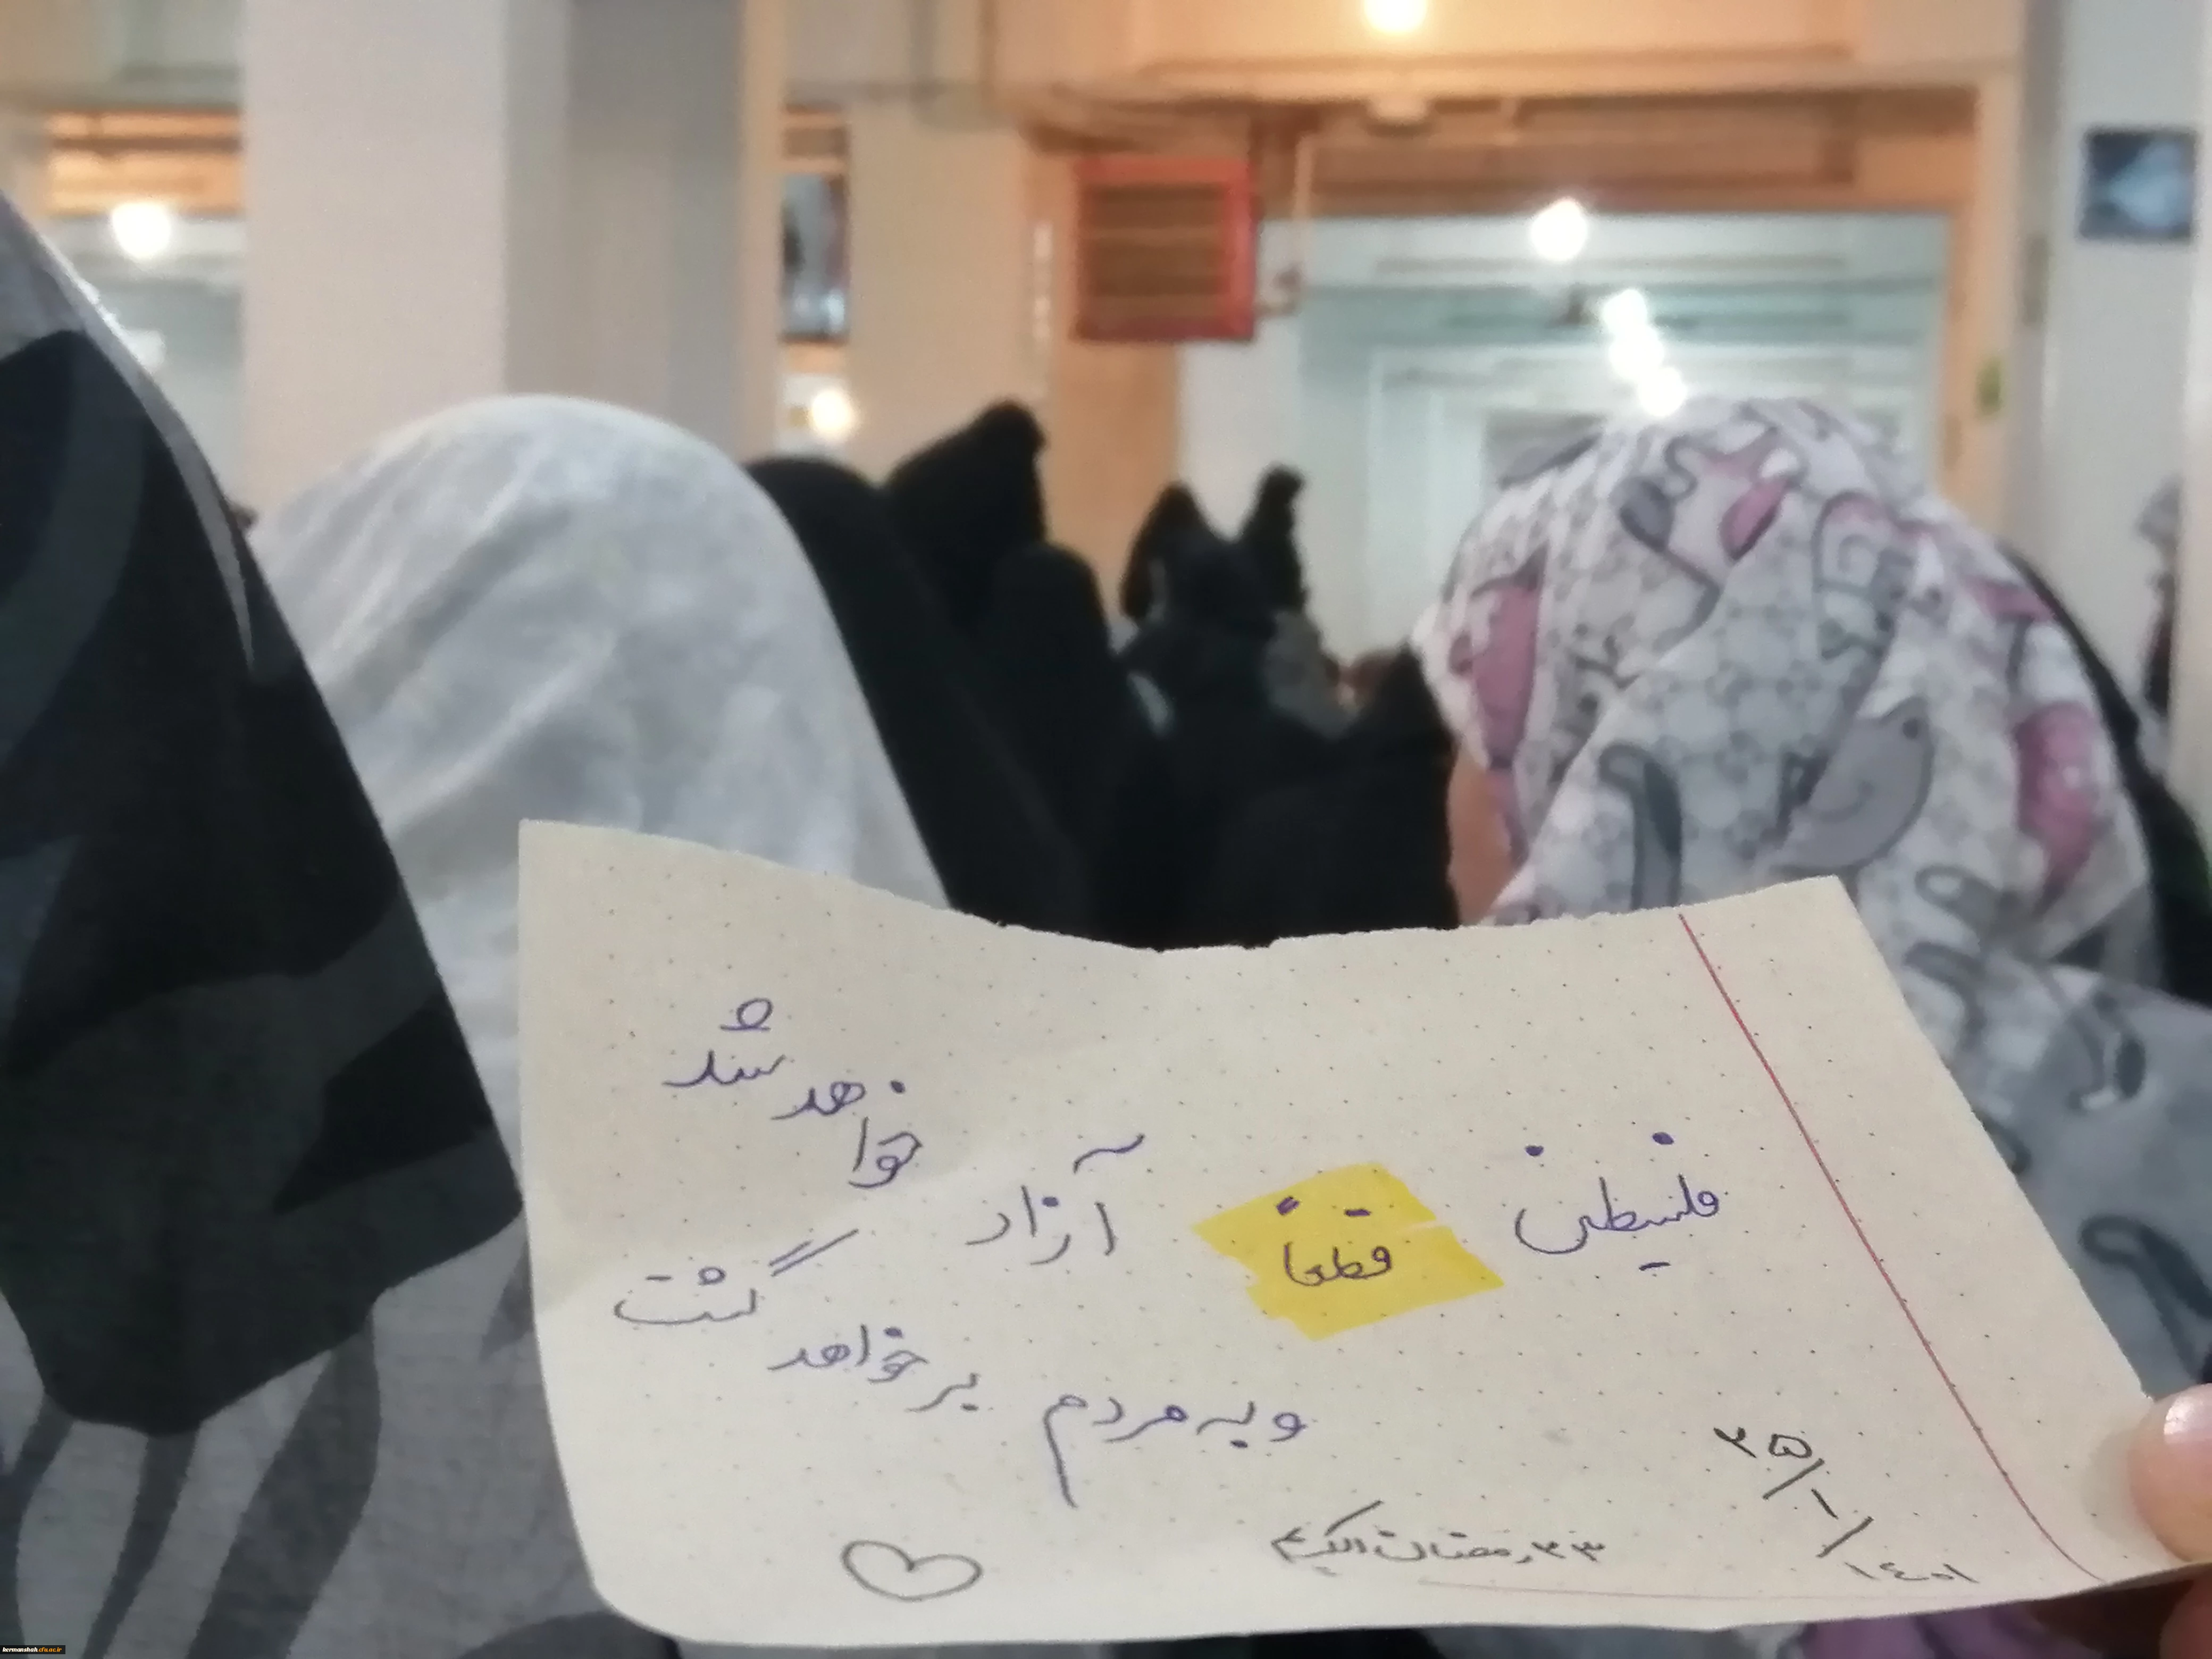 فلسطین قطعاً آزاد خواهد شد
و به مردم برخواهد گشت
۲۵/۱/۱۴۰۱
۲۳ رمضان الکریم
kermanshah.cfu.ac.ir